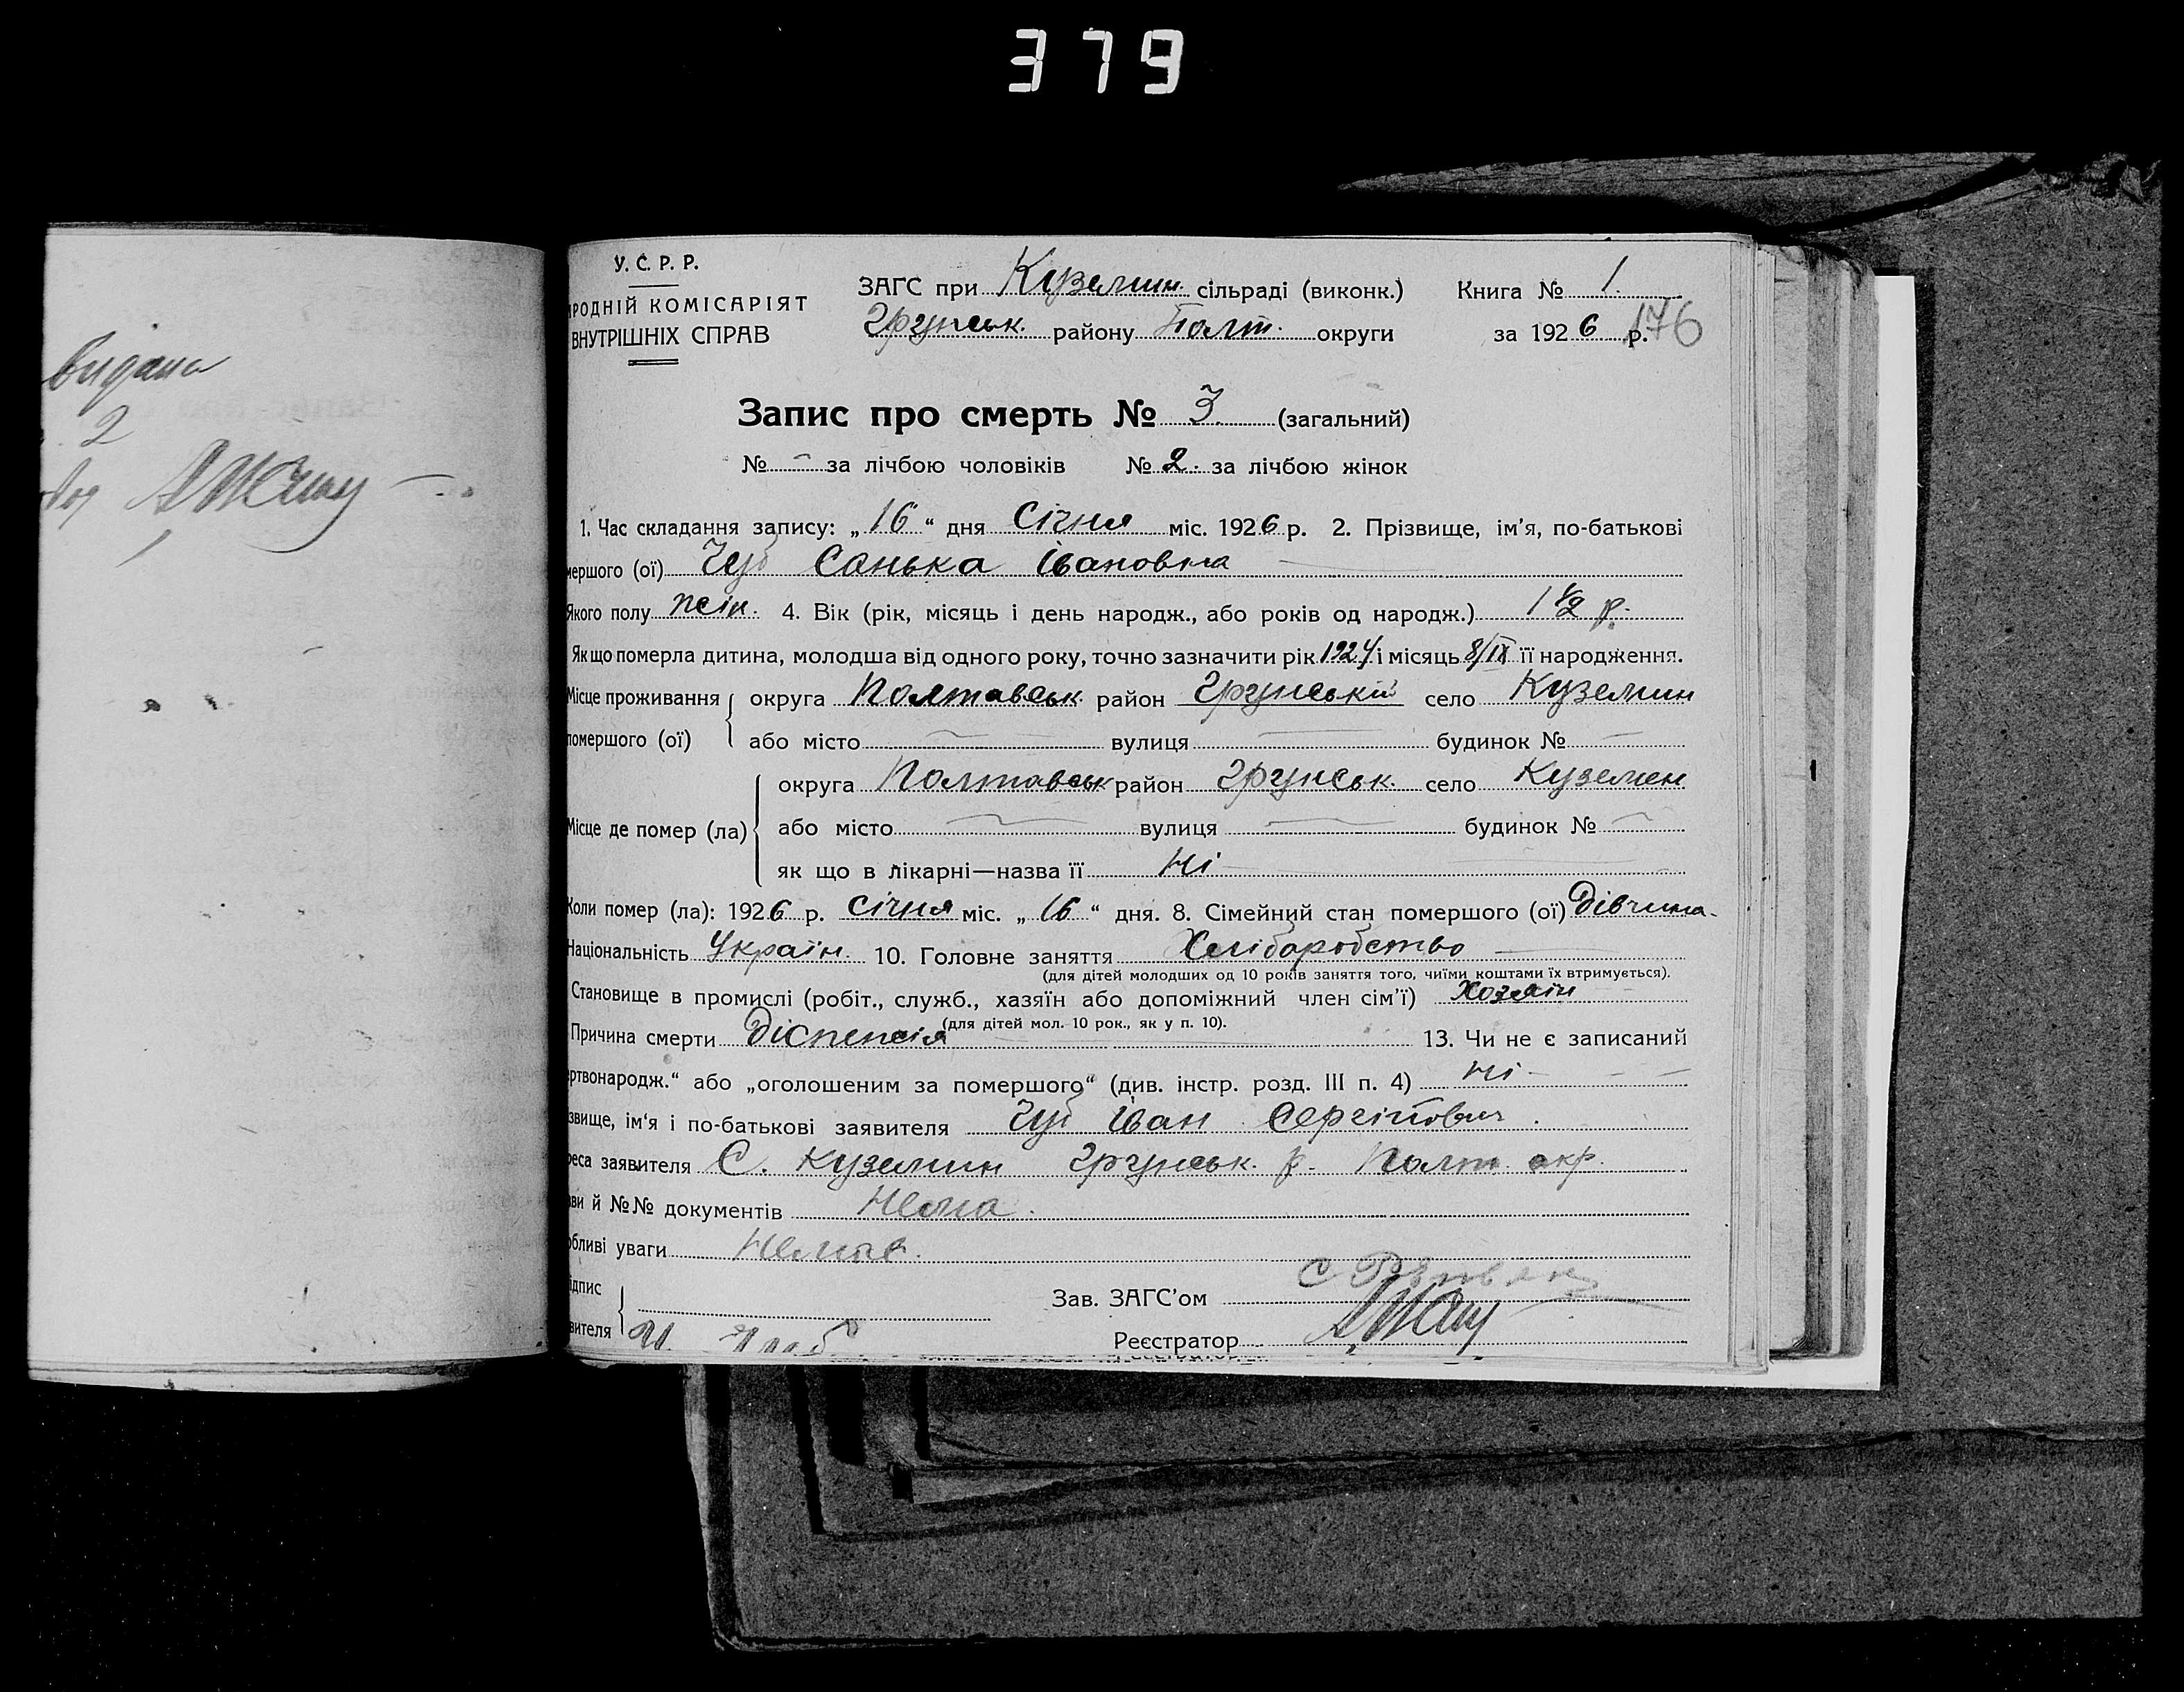 379
видано
2
У. С. Р. Р.
РОДНІЙ КОМІСАРІЯТ
ВНУТРІШНІХ СПРАВ
ЗАГС при Куземин. сільраді (виконк.) Книга № 1.
Грунськ. району Полт. округи за 1926 р. 176
Запис про смерть № 3 (загальний)
№ - за лічбою чоловіків № 2. за лічбою жінок
1. Час складання запису: „16“ дня Січня міс. 1926 р. 2. Прізвище, ім'я, по-батькові
мершого (ої) Чуб Санька Івановна
Якого полу жін. 4. Вік (рік, місяць і день народж., або років од народж.) 1 1/2 р.
Якщо померла дитина, молодша від одного року, точно зазначити рік 1924 і місяць 8/IX її народження.
Місце проживання округа Полтавськ район Грунський село Куземин
помершого (ої) або місто вулиця будинок №
округа Полтавськ район Грунськ. село Куземен
Місце де помер (ла) або місто вулиця будинок №
як що в лікарні—назва її Ні
Коли помер (ла): 1926 р. Січня міс. „16“ дня. 8. Сімейний стан помершого (ої) Дівчина
Національність Україн. 10. Головне заняття Хліборобство
(для дітей молодших од 10 років заняття того, чиїми коштами їх втримується).
Становище в промислі (робіт., служб., хазяїн або допоміжний член сім'ї) Хозяїн
(для дітей мол. 10 рок., як у п. 10).
Причина смерти Діспепсія 13. Чи не є записаний
ртвонародж.“ або „оголошеним за помершого“ (див. інстр. розд. III п. 4) Ні
звище, ім'я і по-батькові заявителя Чуб Іван Сергійович.
реса заявителя С. Куземин Грунськ. р. Полт. окр.
ви й №№ документів Нема.
обливі уваги Немає.
ідпис
вителя И. Чуб
Зав. ЗАГС'ом
Реєстратор